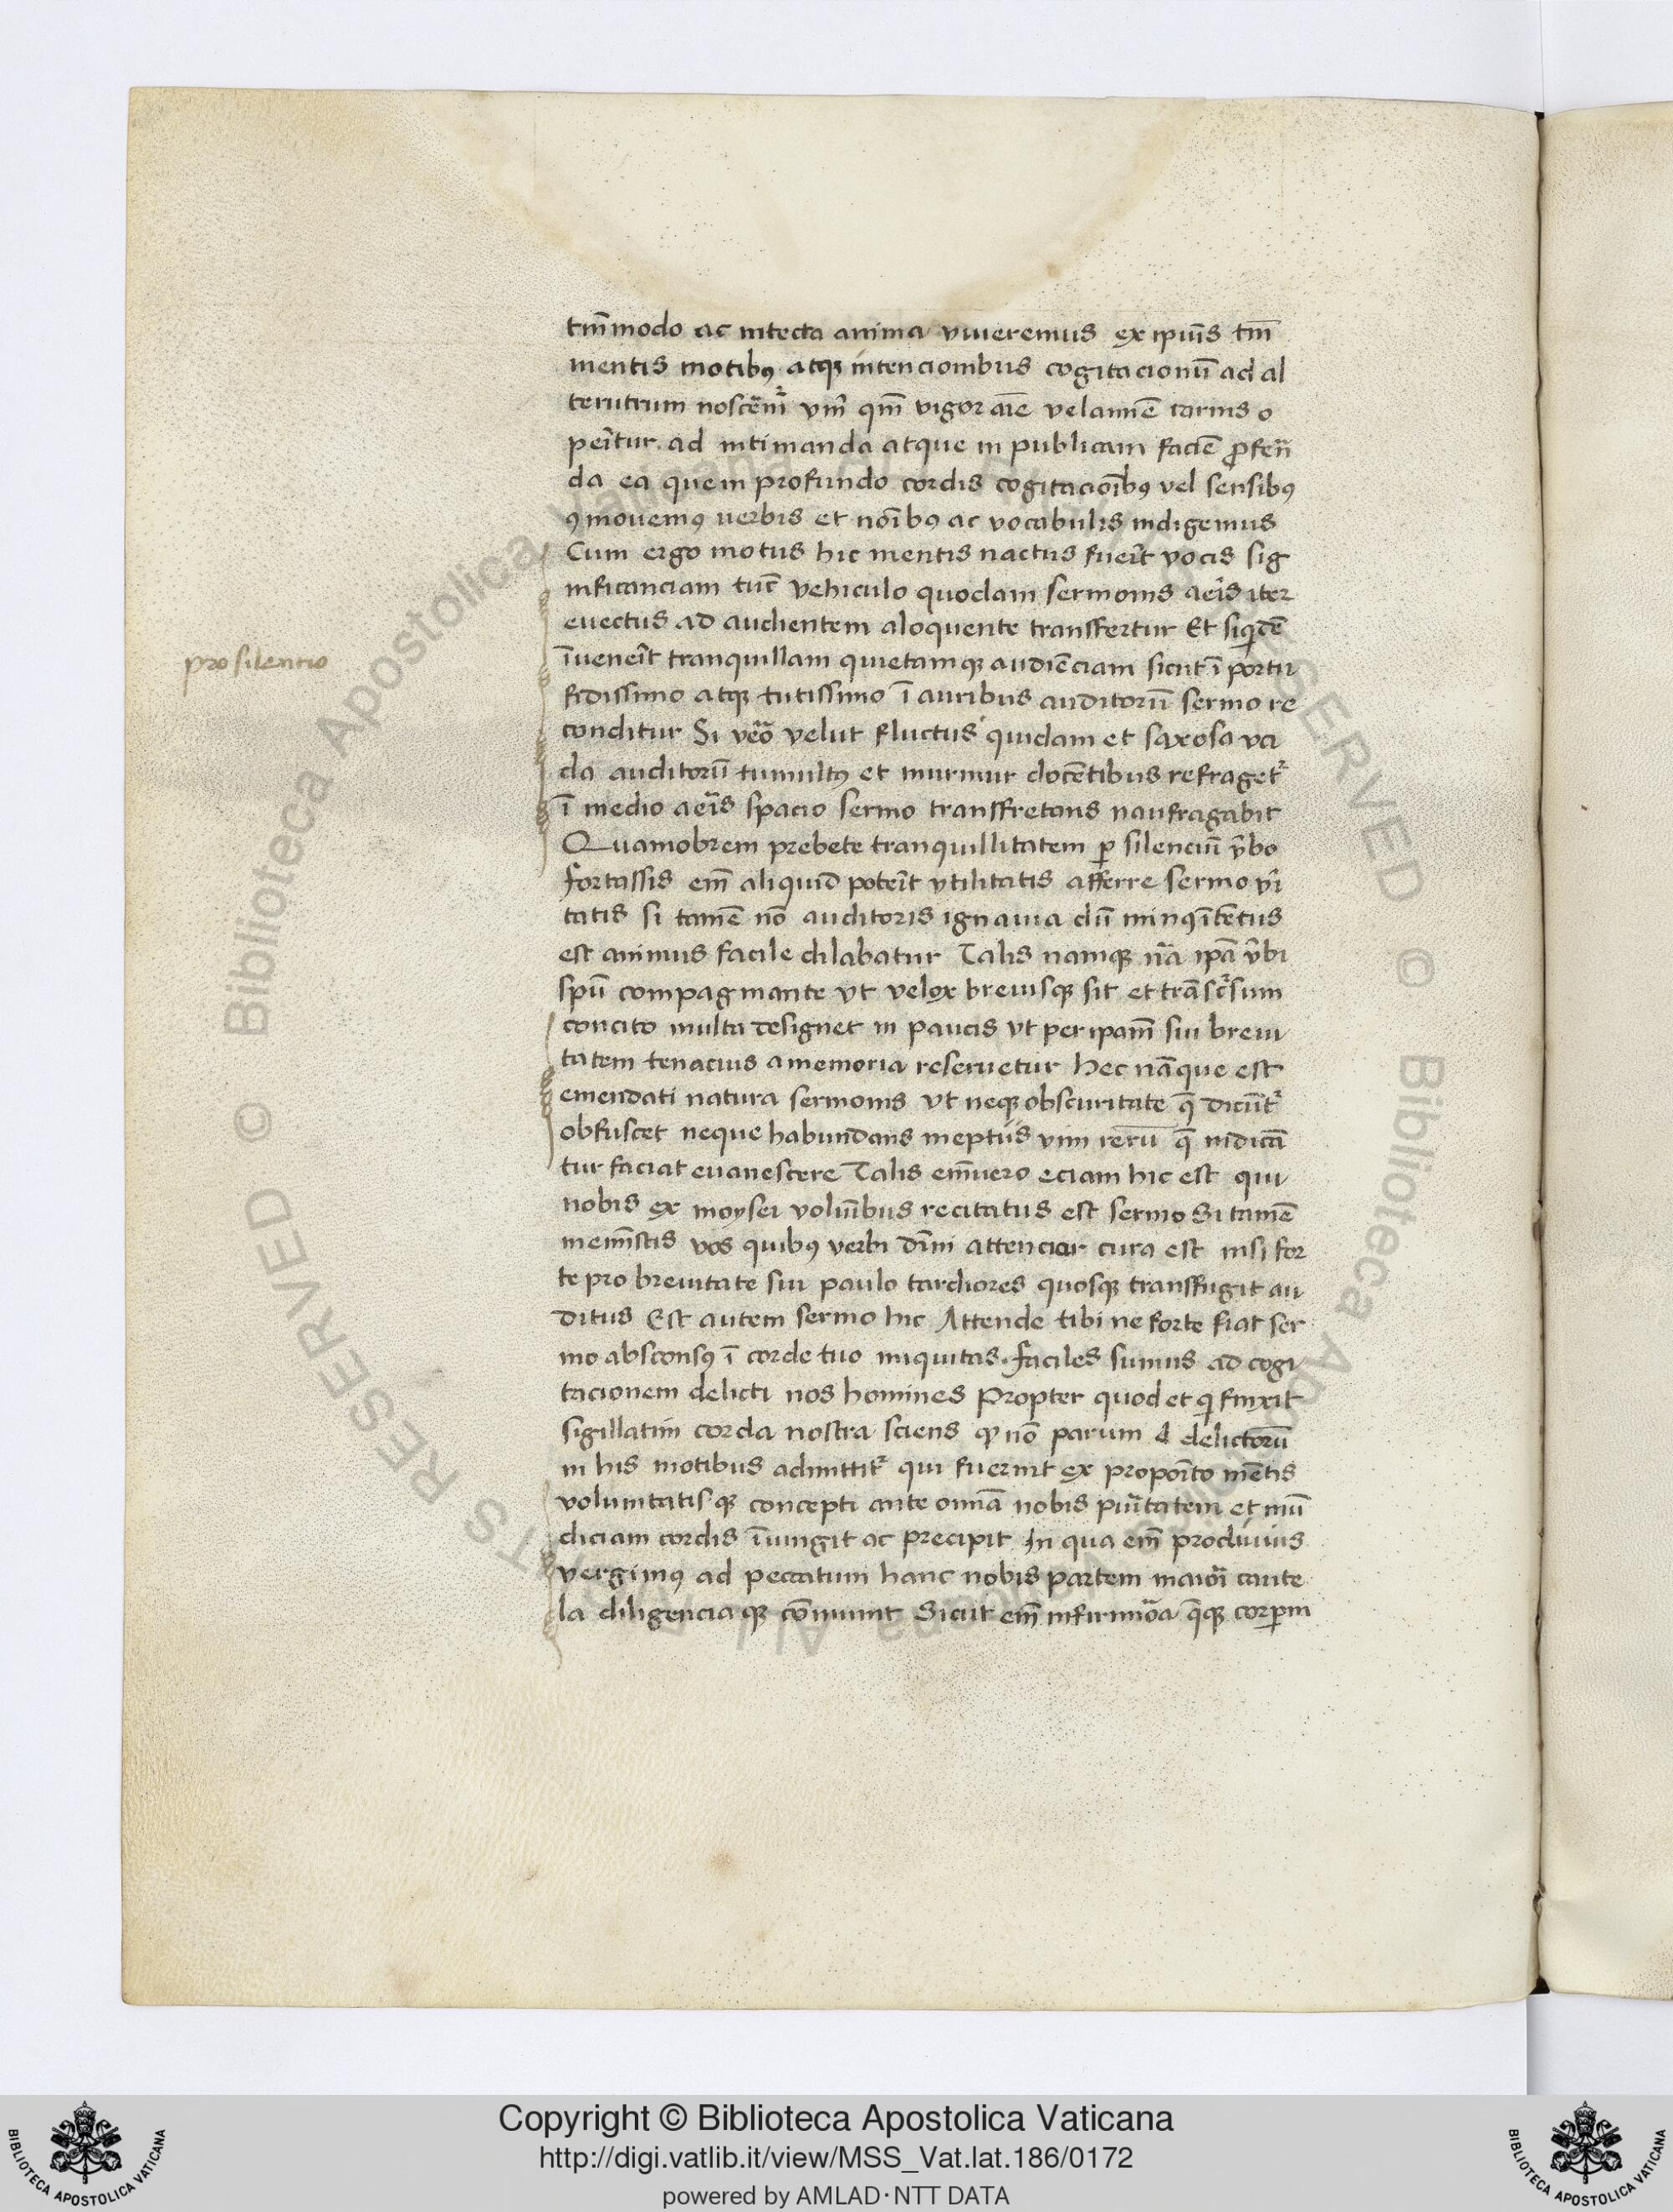 tm̄modo ac intecta anima viueremus ex ipiūs tm̄
mentis motibꝰ atqꝫ intencionibus cogitacionū ad al
terutrum noscem̄ᷣ vm̄ qm̄ vigor aīe velamē carnis o
peît̂ur ad intimanda atque in publicam faciē ꝓferē
da ea que in profundo cordis cogitacioībꝰ vel sensibꝰ
ꝯmouemꝰ uerbis et noībꝰ ac vocabulis indigemus
Cum ergo motus hic mentis nactus fueit̂ vocis sig
nificanciam tuc̄ vehiculo quodam sermonis aeîs iter
euectus ad audientem aloquente transfertur Et siqͥdē
īueneit̂ tranquillam quietamqꝫ audiēciam sicut ī portu
pro silentio
fidissimo atqꝫ tutissimo ī auribus auditorū sermo re
conditur Si veō velut fluctus quidam et saxosa va
da auditorū tumultꝰ et murmur docētibus refragetᷣ
ī medio aeîs spacio sermo transfretans naufragabit
Quamobrem prebete tranquillitatem ꝑ silenciū v̂bo
fortassis em̄ aliquid poteît vtilitatis afferre sermo vî
tatis si tamē nō auditoris ignauia dū minꝰ ītētus
est animus facile dilabatur Talis namqꝫ nā ipā v̂bi
spū compaginante vt velox breuisqꝫ sit et trāscᷣsum
concito multa designet in paucis vt per ipam̄ sui breui
tatem tenacius a memoria reseruetur hec nāque est
emendati natura sermonis vt neqꝫ obscuritate q̄ dicūtᷣ
obfuscet neque habundans ineptiis vim rerū q̄ indicā
tur faciat euanescere Talis em̄vero eciam hic est qui
nobis ex moysei voluībus recitatus est sermo Si tamē
memīstis vos quibꝰ verbi dīni attencior cura est nisi for
te pro breuitate sui paulo tardiores quosqꝫ transfugit au
ditus Est autem sermo hic Attende tibi ne forte fiat ser
mo absconsꝰ ī corde tuo iniquitas. faciles sumus ad cogi
tacionem delicti nos homines Propter quod et qͥ finxit
sigillatim corda nostra sciens ꝙ nō parum delictorū
in his motibus admittitᷣ qui fuerint ex propoīto mētis
voluntatisqꝫ concepti ante omnā nobis puîtatem et mū
diciam cordis īiungit ac precipit In qua em̄ procliuius
vergimꝰ ad peccatum hanc nobis partem maioî caute
la diligenciaqꝫ cōmunit Sicut em̄ infirmiōa q̄qꝫ corpm
Copyright © Biblioteca Apostolica Vaticana
http://digi.vatlib.it/view/MSS_Vat.lat.186/0172
powered by AMLAD·NTT DATA